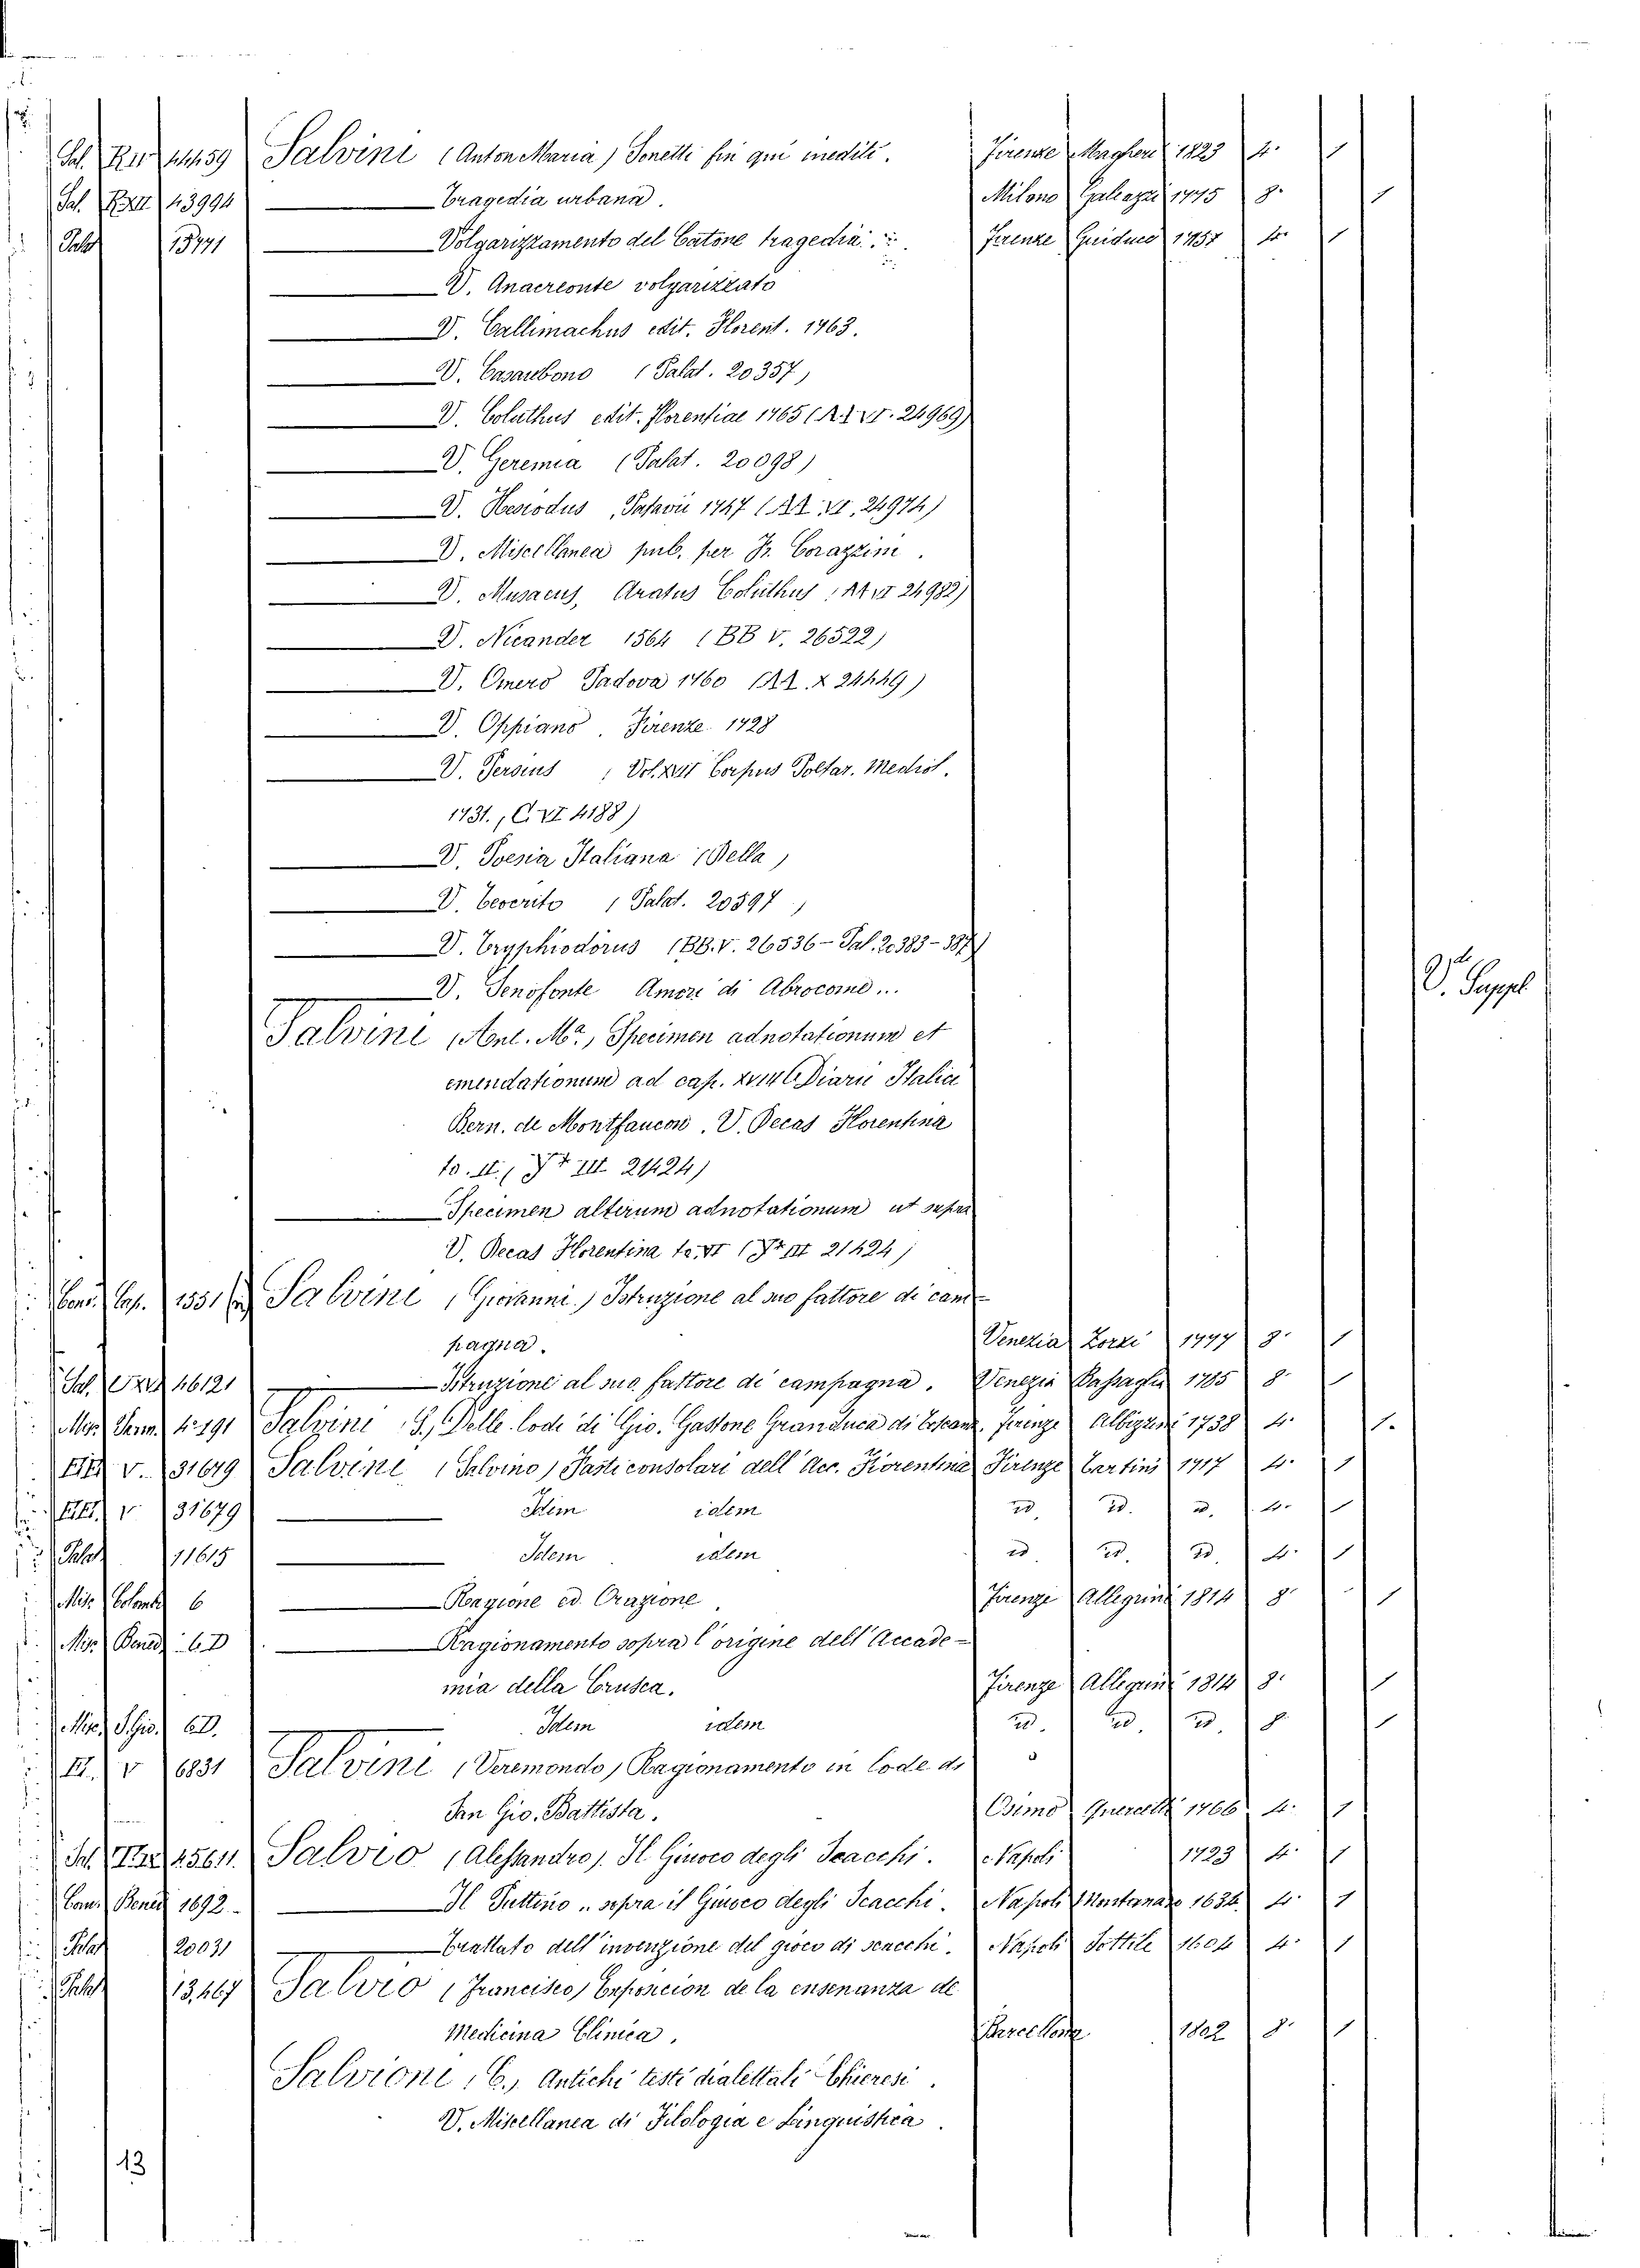 Salvini (Anton Maria) Sonetti fin qui inediti. Firenze Magheri 1823 4. 1
Sal. 43994 Tragedia urbana. Milano Galeazzi 1775 8. 1
Palat 13771 Volgarizzamento del Catone tragedia. Firenze Guiducci 4. 1
V. Anacreonte volgarizzato
V. Callimachus edit. Florent. 1763.
V. Casaubono (Palat. 20357)
V. Coluthus edit. Florentiae 1765 (AA VI. 24969)
V. Geremia (Palat. 20098)
V. Hesiodus, Patavii 1747 (AA VI. 24974)
V. Miscellanea pub. per Fr. Corazzini.
V. Musaeus, Aratus Coluthus (AA VI 24982)
V. Nicander 1764 (BB V. 26522)
V. Omero Padova 1760 (AA. X 24449)
V. Oppiano. Firenze 1728
V. Persius (Vol. Corpus Poetar. Mediol.
1731., C. VI 4188)
V. Poesia Italiana (Della)
V. Teocrito (Palat. 20597)
V. Tryphiodorus (BB. V. 26536 - Pal. 20383-387)
V. Senofonte Amori di Abrocome...
Salvini (Ant. Ma.) Specimen adnotationum et
emendationum ad cap. Diarii Italici
Bern. de Montfaucon. V. Decas Florentina
to. II. ( III 21424)
Specimen alterum adnotationum ut supra
V. Decas Florentina to. VI ( III 21424)
1551 Salvini (Giovanni) Istruzione al suo fattore di cam-
pagna. Venezia Zorzi 1777 8. 1
Sal. 46121 Istruzione al suo fattore di campagna. Venezia 1785 8. 1
Salvini (S.) Delle lodi di Gio. Gastone Granduca di Toscana. Firenze Albizzini 1738 4. 1.
V. 31679 Salvini (Salvino) Fasti consolari dell'Acc. Fiorentina Firenze Tartini 1717 4. 1
V 31679 Idem idem id. id. id. 4. 1
Palat 11615 Idem idem id. id. id. 4. 1
Misc. Colomb. 6 Ragione ed Orazione. Firenze Allegrini 1814 8. 1
Misc. Bened. 6.D Ragionamento sopra l'origine dell'Accade-
mia della Crusca. Firenze Allegrini 1814 8. 1
Misc. S. Gio. 6D. Idem idem id. id. id. 8. 1
V 6831 Salvini (Veremondo) Ragionamento in lode di
San Gio. Battista. Osimo Quercetti 1766 4. 1
45611. Salvio (Alessandro) Il Giuoco degli Scacchi. Napoli 1723 4. 1
Com. Bened. 1692. Il Puttino.. sopra il Giuoco degli Scacchi. Napoli Montanaro 1634. 4. 1
Palat 20031 Trattato dell'invenzione del gioco di scacchi. Napoli Sottile 1604 4. 1
Palat 13,467 Salvio (Francisco) Exposicion de la ensenanza de
Medicina Clinica. Barcellona 1802 8. 1
Salvioni (C.) Antichi testi dialettali Chieresi.
V. Miscellanea di Filologia e Linguistica.
V. Suppl
13